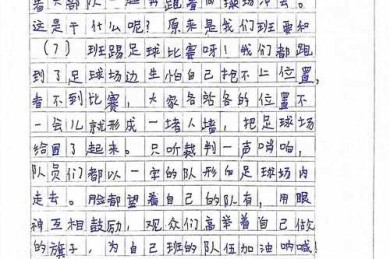 着大部队一起奔跑着向球场冲去。
这是干什么呢？原来是我们班要和
（7）班踢足球比赛呀！我们都跑
到了足球场边生怕自己抢不上位置，
看不到比赛，大家各站各的位置不
一会儿就形成一堵人墙，把足球场
给围了起来。只听裁判一声哨响，
队员们都以一字的队形向足球场内
走去。脸都望着自己的队友，用眼
神互相鼓励，观众们高举着自己做
的旗子，为自己班的队伍加油呐喊！